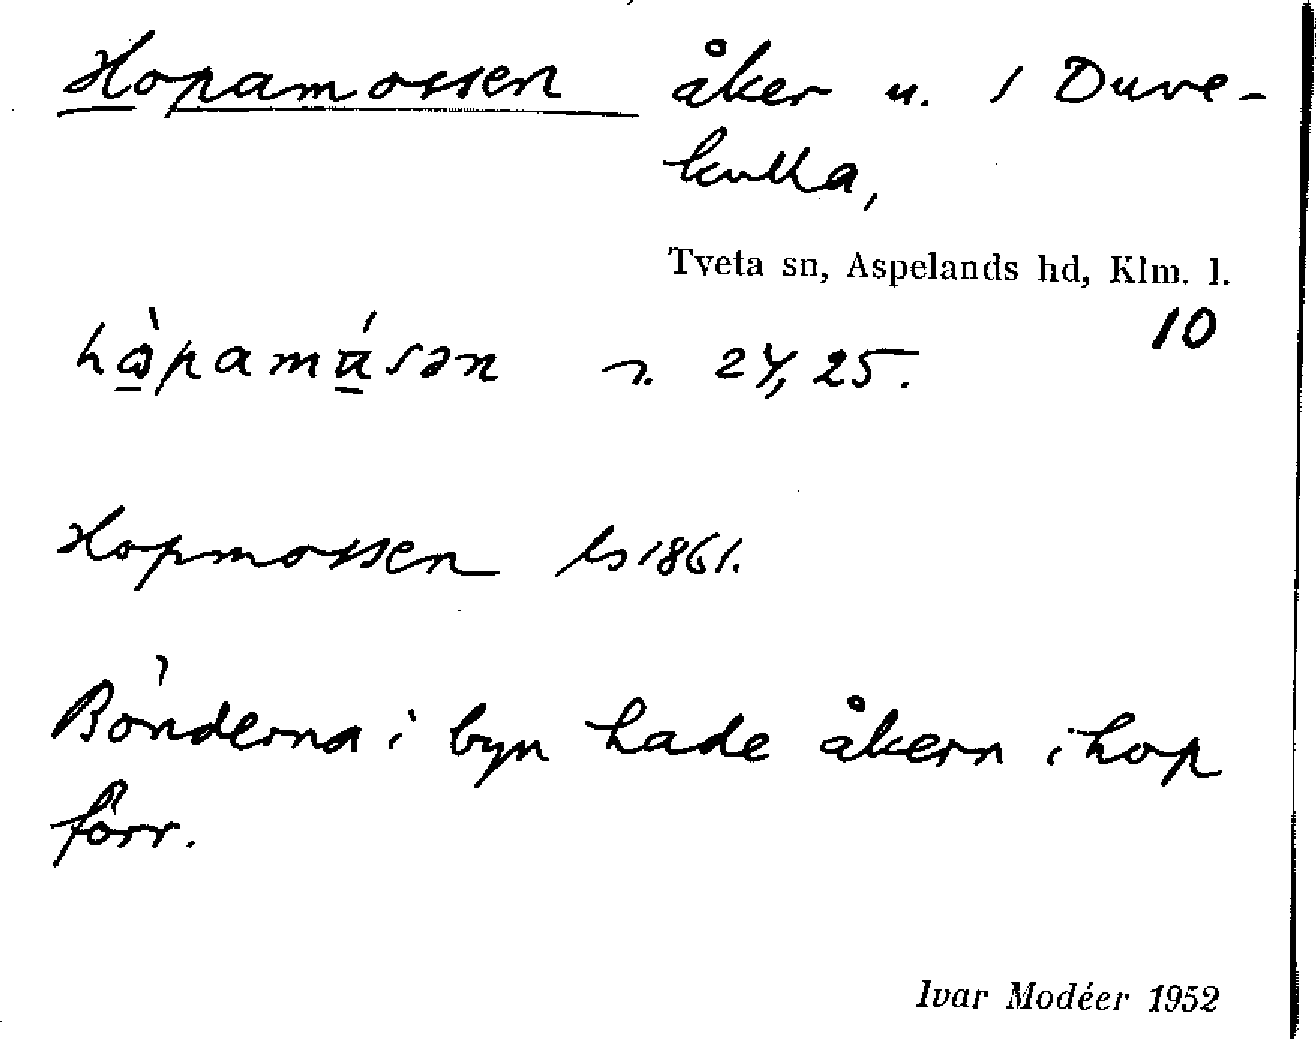 Hopamossen åker u. 1 Duve-
kulla,
Tveta sn, Aspelands hd, Klm. l.
10
24, 25.
Hopmossen ls 1861.
Bönderna i byn hade åkern ihop
förr.
Ivar Modéer 1952